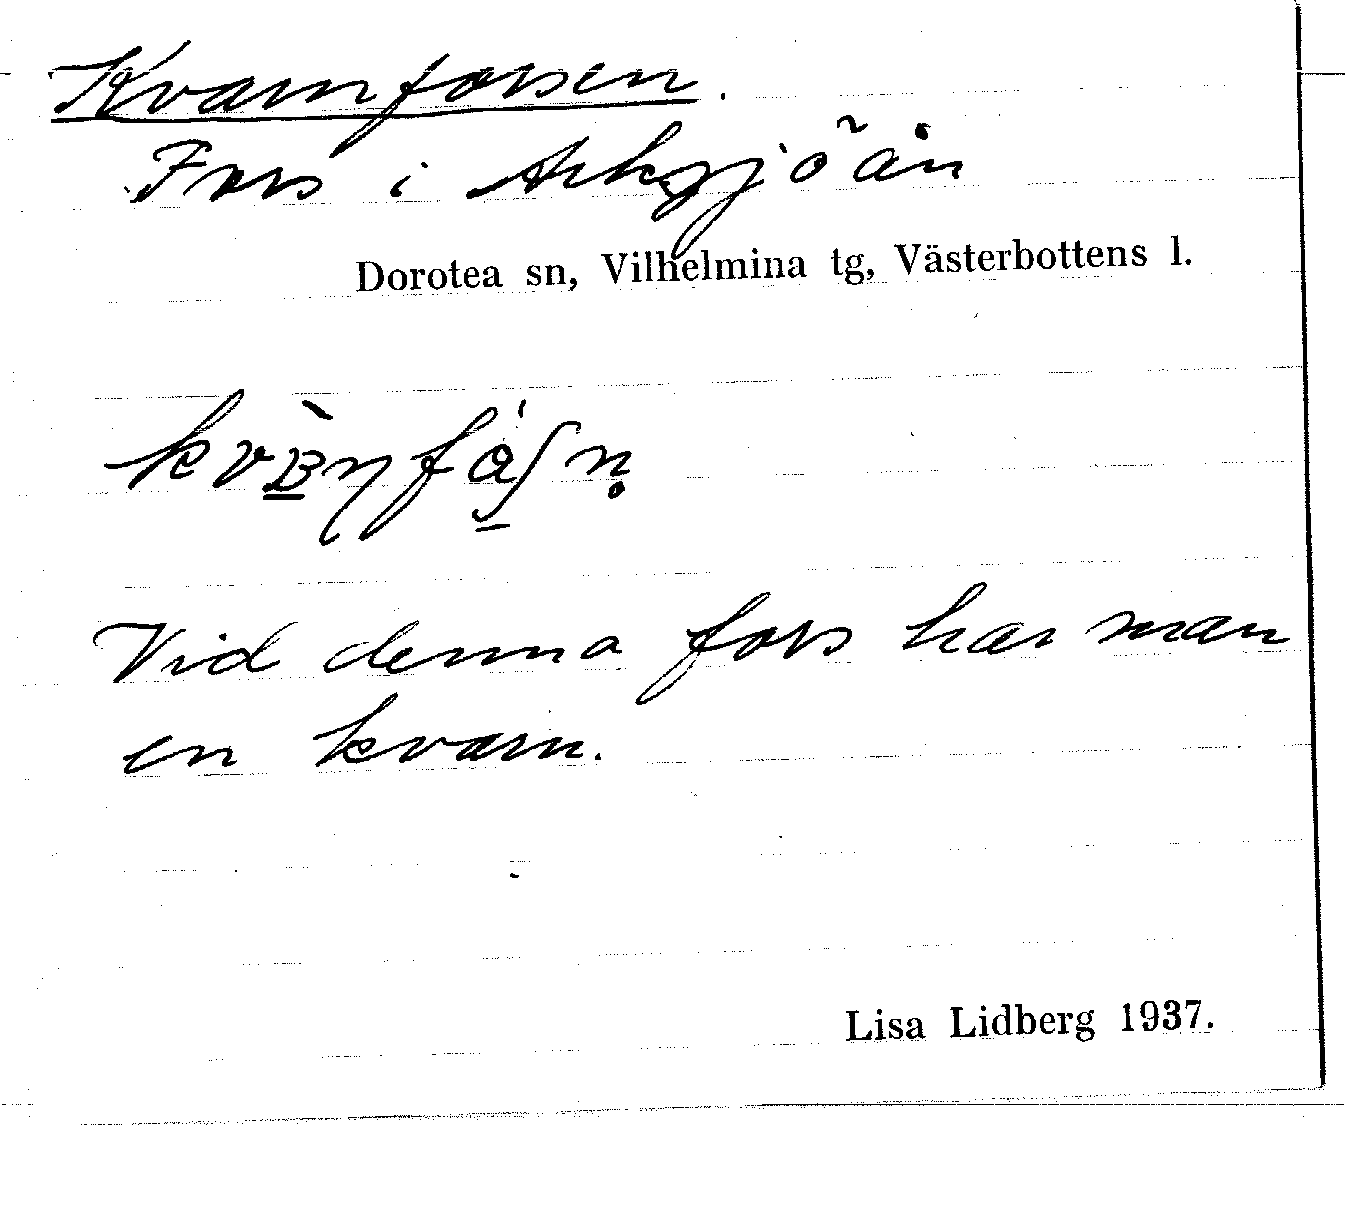 Kvarnforsen.
Fors i Arksjöån
Dorotea sn, Vilhelmina tg, Västerbottens l.
Vid denna fors har man
en kvarn.
Lisa Lidberg 1937.